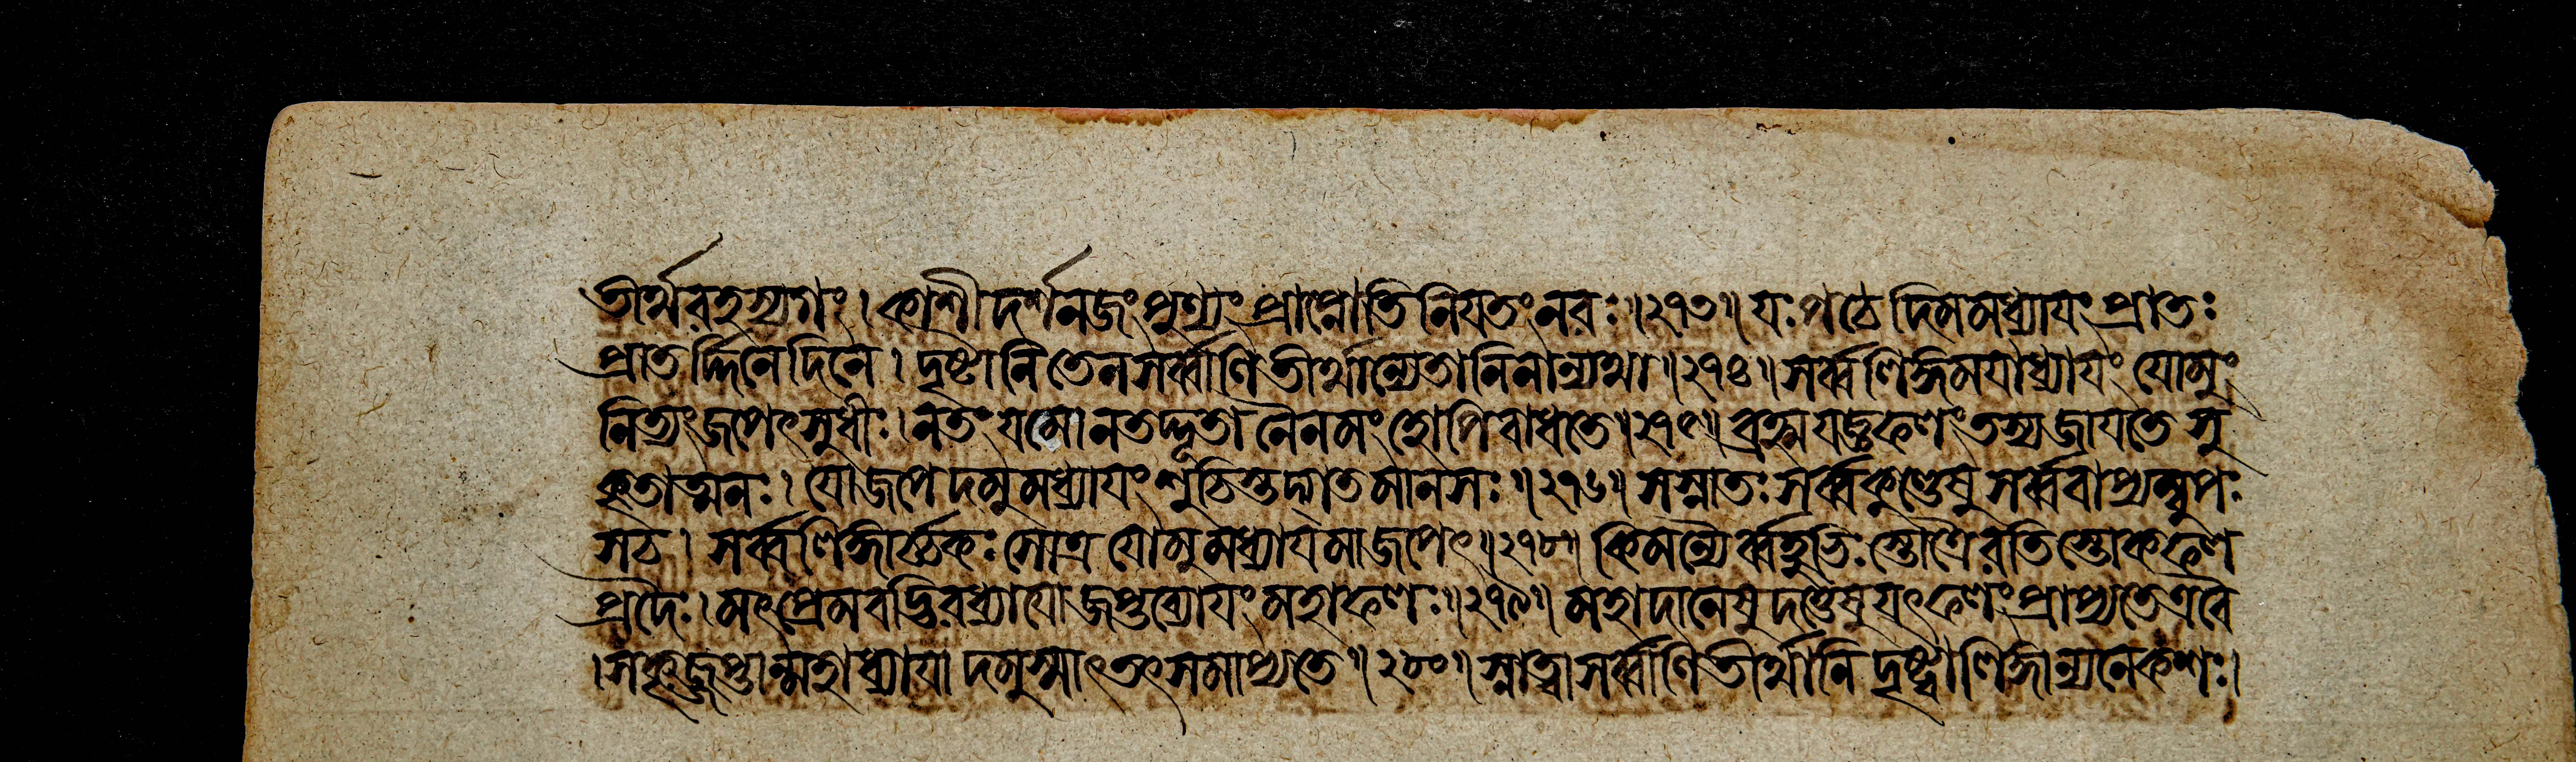 তীর্থরহস্যশঃ। কাশীদর্শনজং পুণ্যং প্রাপ্নোতিনিযতংনরঃ॥২৭৩॥ যঃপঠেদিমমধ্যাযং প্রাতঃ
প্রাতর্দ্দিনেদিনে। দৃষ্টানিতেনসর্ব্বাণিতীর্থান্যেতানিনান্যথা॥২৭৪॥সর্ব্বলিঙ্গমযাধ্যাযং যোমুং
নিত্যংজপেৎসুধীঃ।নতংযমোনতদ্দূতা নৈনমংহোপিবাধতে॥২৭৫॥ব্রহ্মযজ্ঞফলংতস্যজাযতে সু
কৃতাত্মনঃ। যোজপেদমুমধ্যাযং শুচিস্তদ্গতমানসঃ॥২৭৬॥ সস্নাতঃসর্ব্বকুণ্ডেষু সর্ব্ববাপ্যম্বুপঃ
সচ। সর্ব্বলিঙ্গার্চ্চকঃসোত্র যোমুমধ্যাযমাজপেৎ॥২৭৮॥ কিমন্যৈর্ব্বহুভিঃস্তোত্রৈরতিস্তোকফল
প্রদৈঃ।মৎপ্রেমবদ্ভিরধ্যাযো জপ্তব্যোযংমহাফলঃ॥২৭৯॥ মহাদানেষুদত্তেষুযৎফলংপ্রাপ্যতেত্রবৈ
।সকৃজ্জপ্তান্মহাধ্যাযাদমুষ্মাৎতৎসমাপ্যতে॥২৮০॥ স্নাত্বাসর্ব্বাণিতীর্থানি দৃষ্ট্বালিঙ্গান্যনেকশঃ।